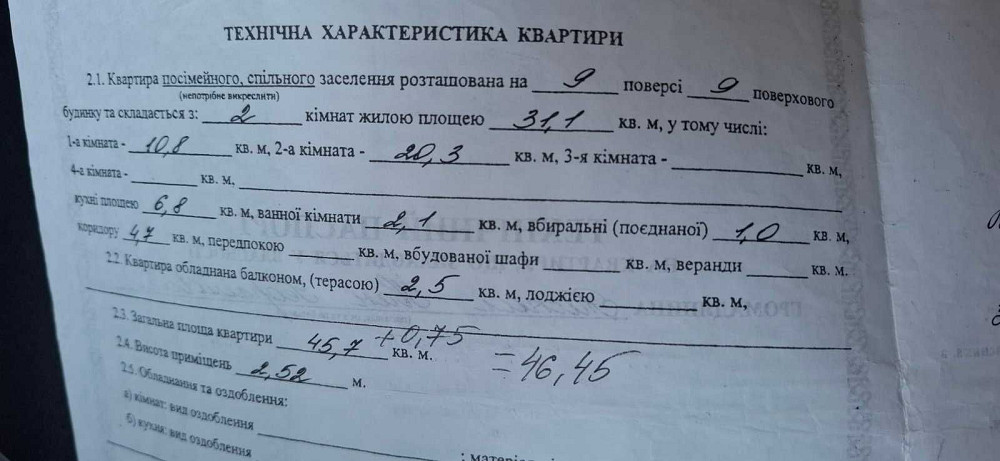 ТЕХНІЧНА ХАРАКТЕРИСТИКА КВАРТИРИ
2.1. Квартира посімейного, спільного заселення розташована на 9 поверсі 9 поверхового
(непотрібне викреслити)
будинку та складається з: 2 кімнат жилою площею 31,1 кв. м, у тому числі:
1-а кімната - 10,8 кв. м, 2-а кімната - 20,3 кв. м, 3-я кімната - кв. м,
4-а кімната - кв. м,
кухні площею 6,8 кв. м, ванної кімнати 2,1 кв. м, вбиральні (поєднаної) 1,0 кв. м,
коридору 4,7 кв. м, передпокою кв. м, вбудованої шафи кв. м, веранди кв. м.
2.2. Квартира обладнана балконом, (терасою) 2,5 кв. м, лоджією кв. м,
2.3. Загальна площа квартири 45,7 +0,75 кв. м. =46,45
2.4. Висота приміщень 2,52 м.
2.5. Обладнання та оздоблення:
а) кімнат: вид оздоблення
б) кухня: вид оздоблення